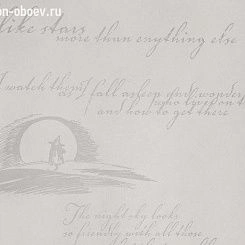 on-oboev.ru
like stars
more than anything else
I watch them
as I fall asleep and wonder
who lives on t
and how to get there
The night sky looks
so friendly with all those